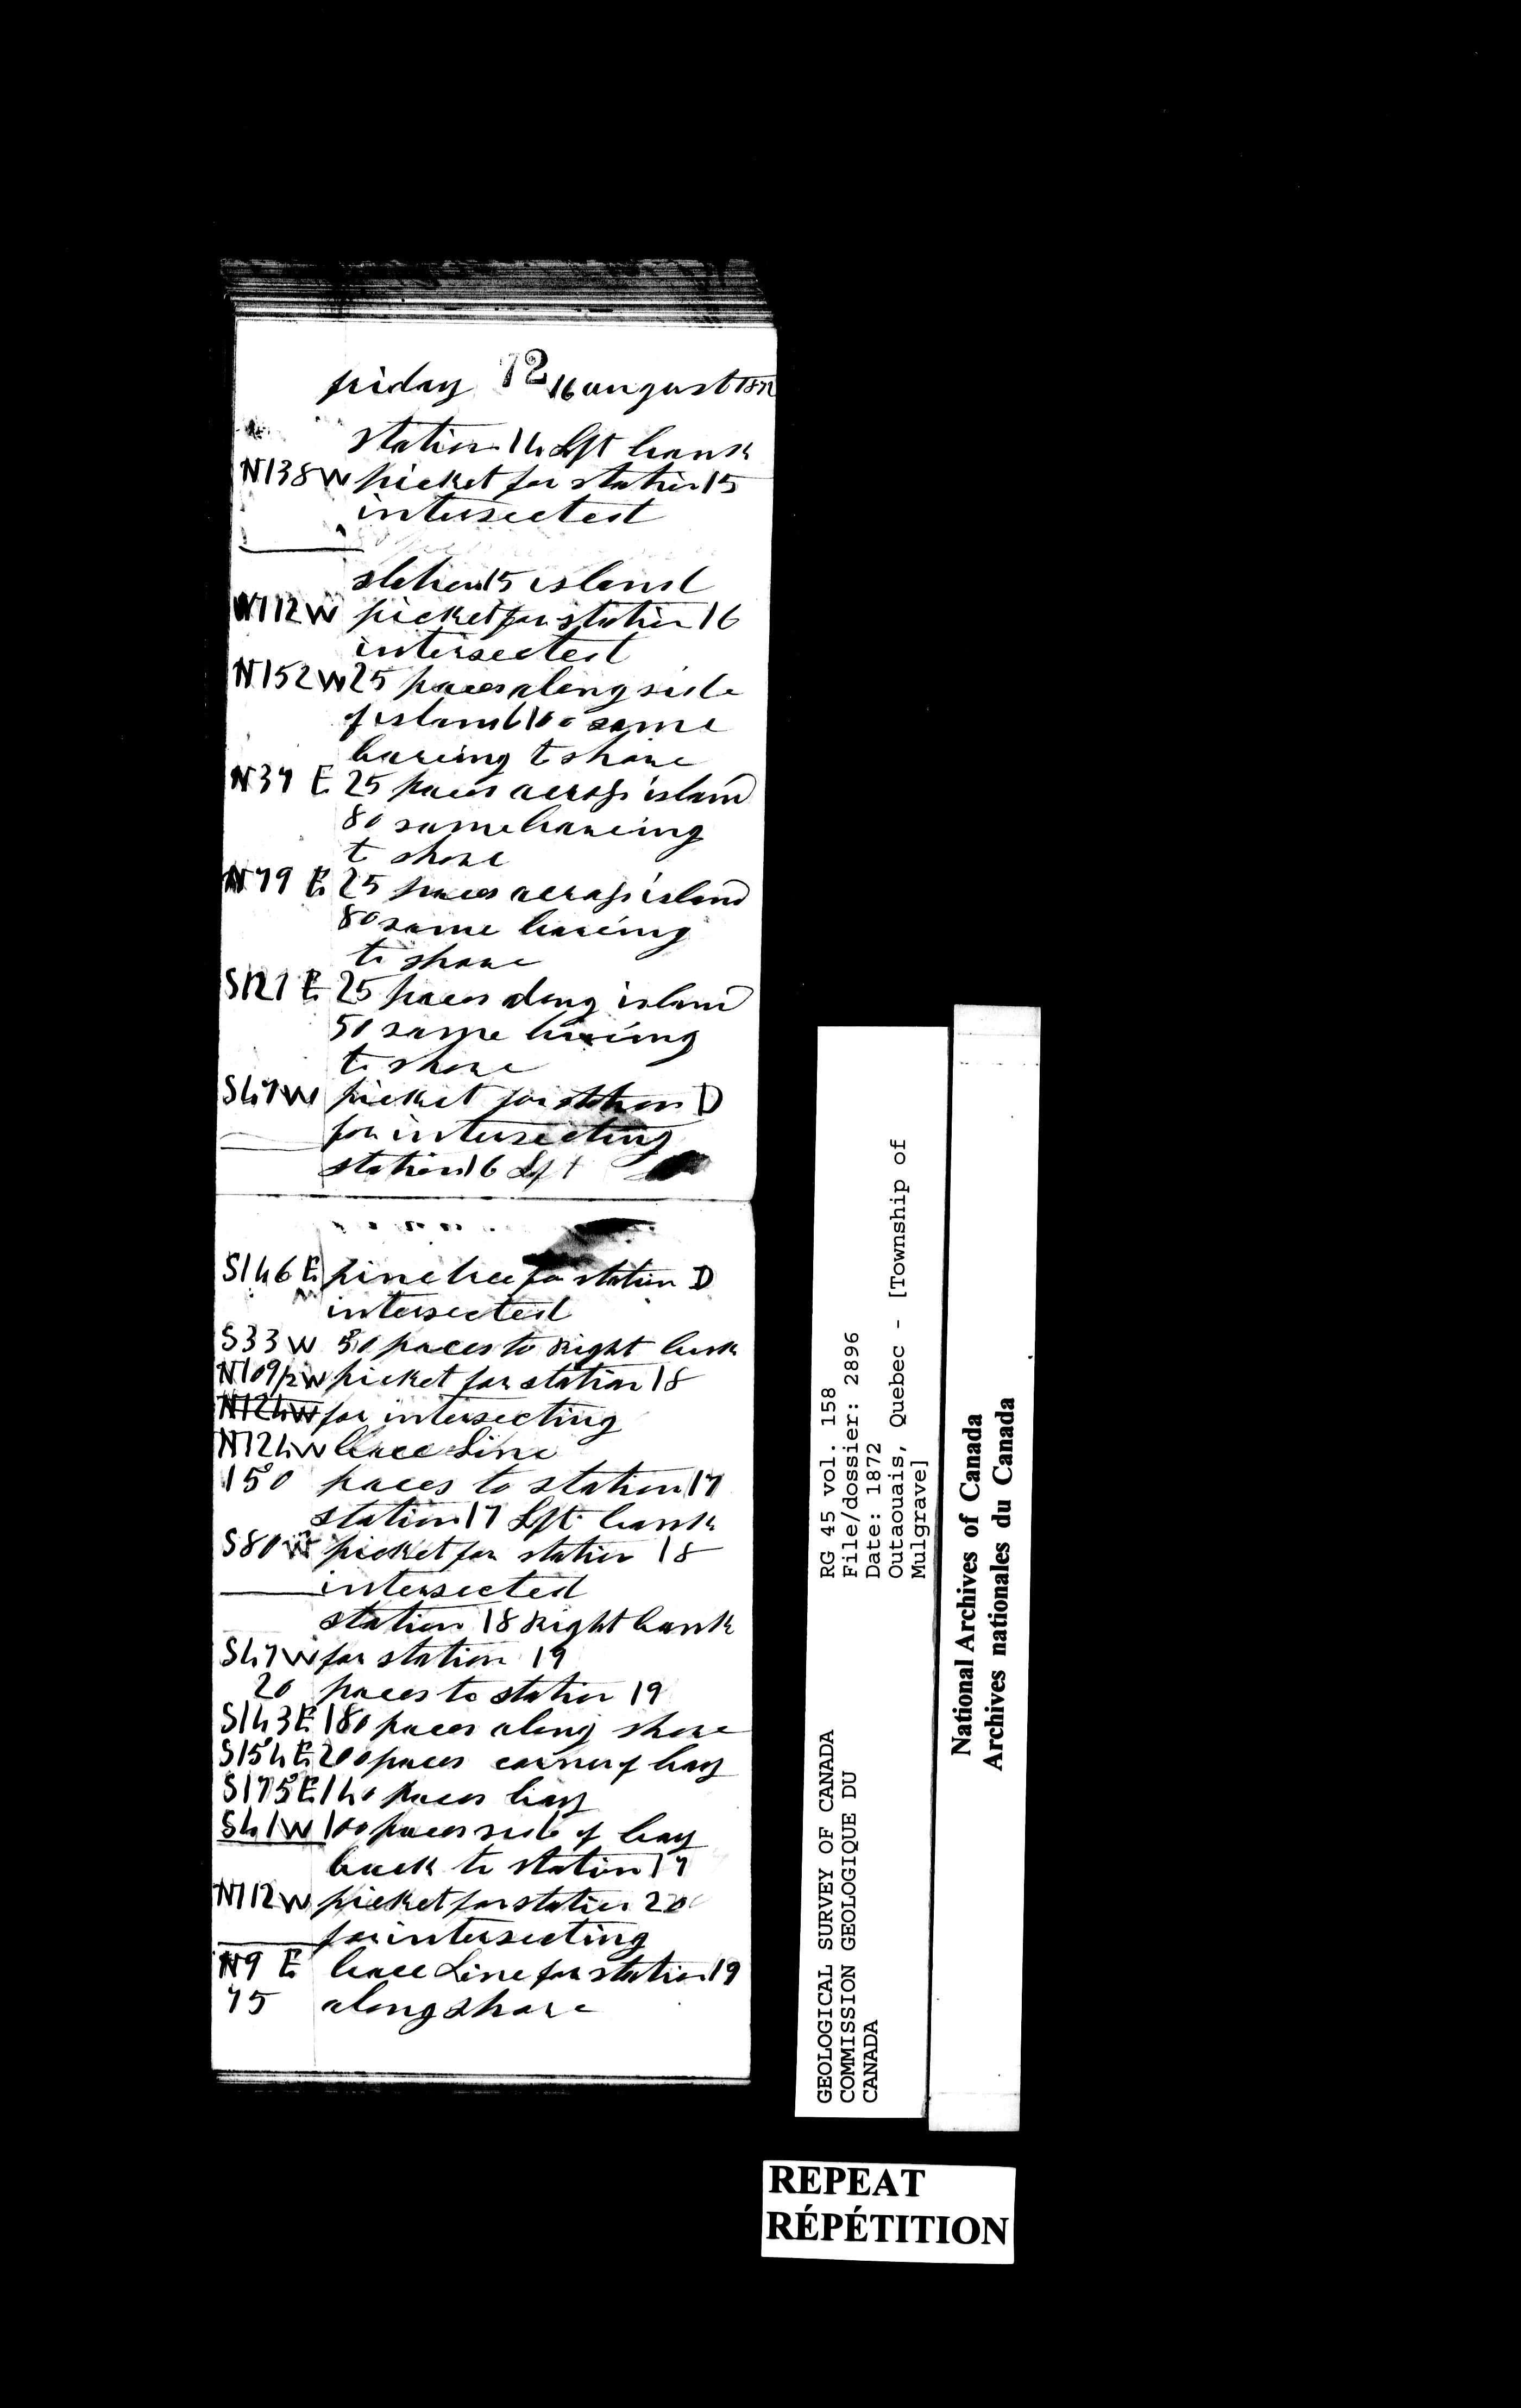 friday 12 16 august 1872
station 14 Lft bank
N138W picket for station 15
intersected
station 15 island
N112W picket for station 16
intersected
N152W 25 paces along side
of island 100 same
bareing to shore
N37 E 25 paces across island
80 same bareing
to shore
N79 E 25 paces across island
80 same bareing
to shore
S121 E 25 paces along island
50 same bareing
to shore
S47W picket for station D
for intersecting
station 16 Lft
S146 E pine tree for station D
intersected
S33 W 50 paces to right bank
N109½W picket for station 18
N124W for intersecting
N124W bace Line
150 paces to station 17
station 17 Lft bank
S80W picket for station 18
intersected
station 18 right bank
S47W for station 19
20 paces to station 19
S143E 180 paces along shore
S154E 200 paces corner of bay
S175E 140 paces bay
S41W 100 paces side of bay
back to station 17
N112W picket for station 20
for intersecting
N9 E bace Line for station 19
75 along shore
GEOLOGICAL SURVEY OF CANADA
COMMISSION GEOLOGIQUE DU
CANADA
RG 45 vol. 158
File/dossier: 2896
Date: 1872
Outaouais, Quebec - [Township of
Mulgrave]
National Archives of Canada
Archives nationales du Canada
REPEAT
RÉPÉTITION